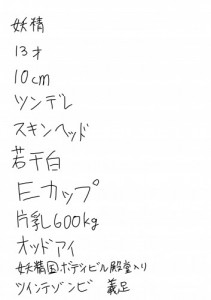 妖精
13才
10cm
ツンデレ
スキンヘッド
若干白
Eカップ
片乳600kg
オッドアイ
妖精国ボディビル殿堂入り
ツインテゾンビ 義足